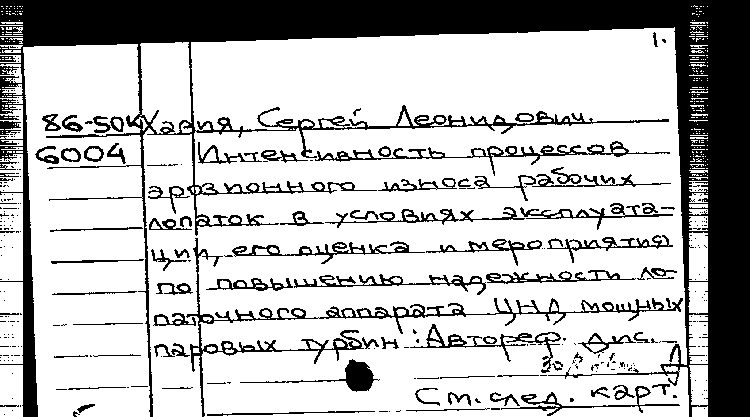 1.
86-50К Хавия, Сергей Леонидович.
6004 Интенсивность процессов
эрозионного износа рабочих
лопаток в условиях эксплуата-
ции, его оценка и мероприятия
по повышению надежности ло-
паточного аппарата ЦНД мощных
паровых турбин : Автореф. дис.
См. след. карт.